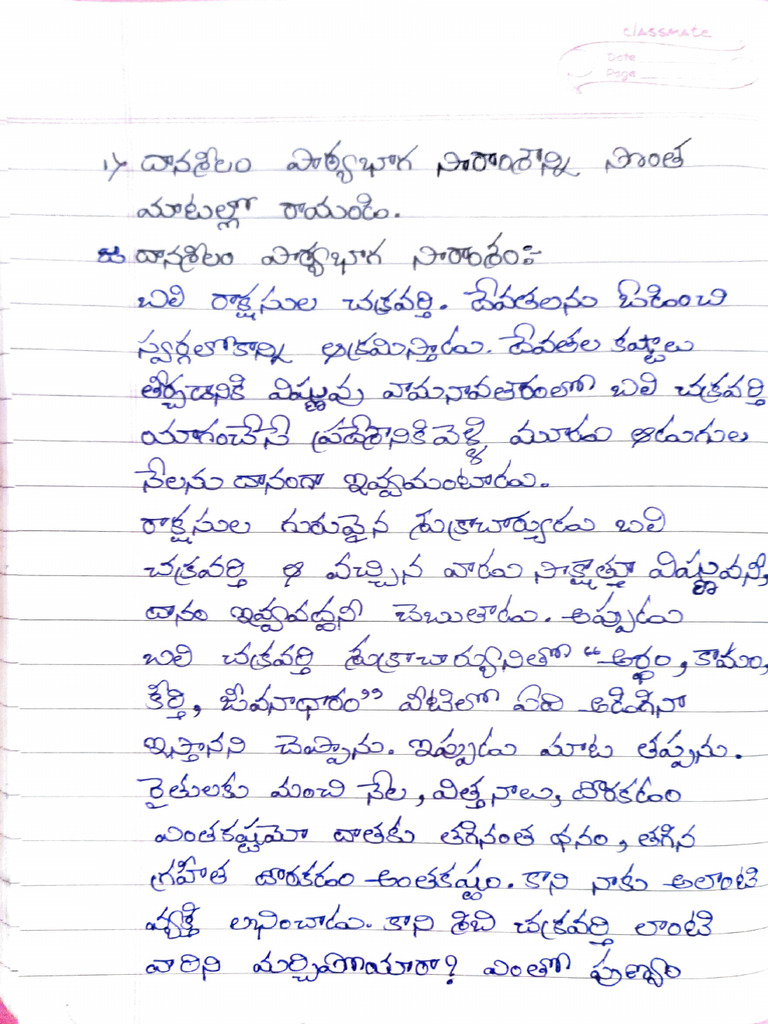 classmate
Date
Page
1) దానశీలం పాఠ్యభాగ సారాంశాన్ని సొంత
మాటల్లో రాయండి.
జ దానశీలం పాఠ్యభాగ సారాంశం:-
బలి రాక్షసుల చక్రవర్తి. దేవతలను ఓడించి
స్వర్గలోకాన్ని ఆక్రమిస్తాడు. దేవతల కష్టాలు
తీర్చడానికి విష్ణువు వామనావతారంలో బలి చక్రవర్తి
యాగంచేసే ప్రదేశానికి వెళ్ళి మూడు అడుగుల
నేలను దానంగా ఇవ్వమంటాడు.
రాక్షసుల గురువైన శుక్రాచార్యుడు బలి
చక్రవర్తి ఆ వచ్చిన వాడు సాక్షాత్తూ విష్ణువని,
దానం ఇవ్వవద్దని చెబుతాడు. అప్పుడు
బలి చక్రవర్తి శుక్రాచార్యునితో "అర్థం, కామం,
కీర్తి, జీవనాధారం" వీటిలో ఏది అడిగినా
ఇస్తానని చెప్పాను. ఇప్పుడు మాట తప్పను.
రైతులకు మంచి నేల, విత్తనాలు, దొరకడం
ఎంతకష్టమో దాతకు తగినంత ధనం, తగిన
గ్రహీత దొరకడం అంతకష్టం. కాని నాకు అలాంటి
వ్యక్తి లభించాడు. కాని శిబి చక్రవర్తి లాంటి
వారిని మర్చిపోయారా? ఎంతో పుణ్యం